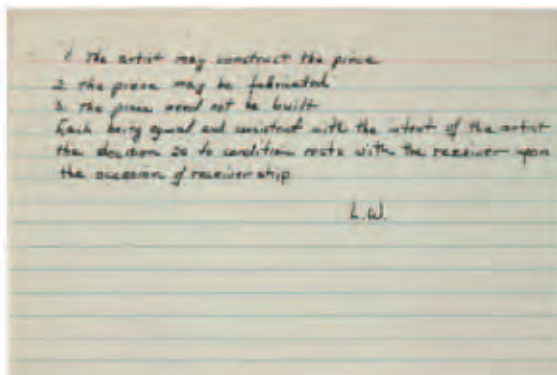 1. The artist may construct the piece
2. the piece may be fabricated
3. the piece need not be built
Each being equal and consistent with the intent of the artist
the decision as to condition rests with the receiver upon
the occasion of receivership
L.W.